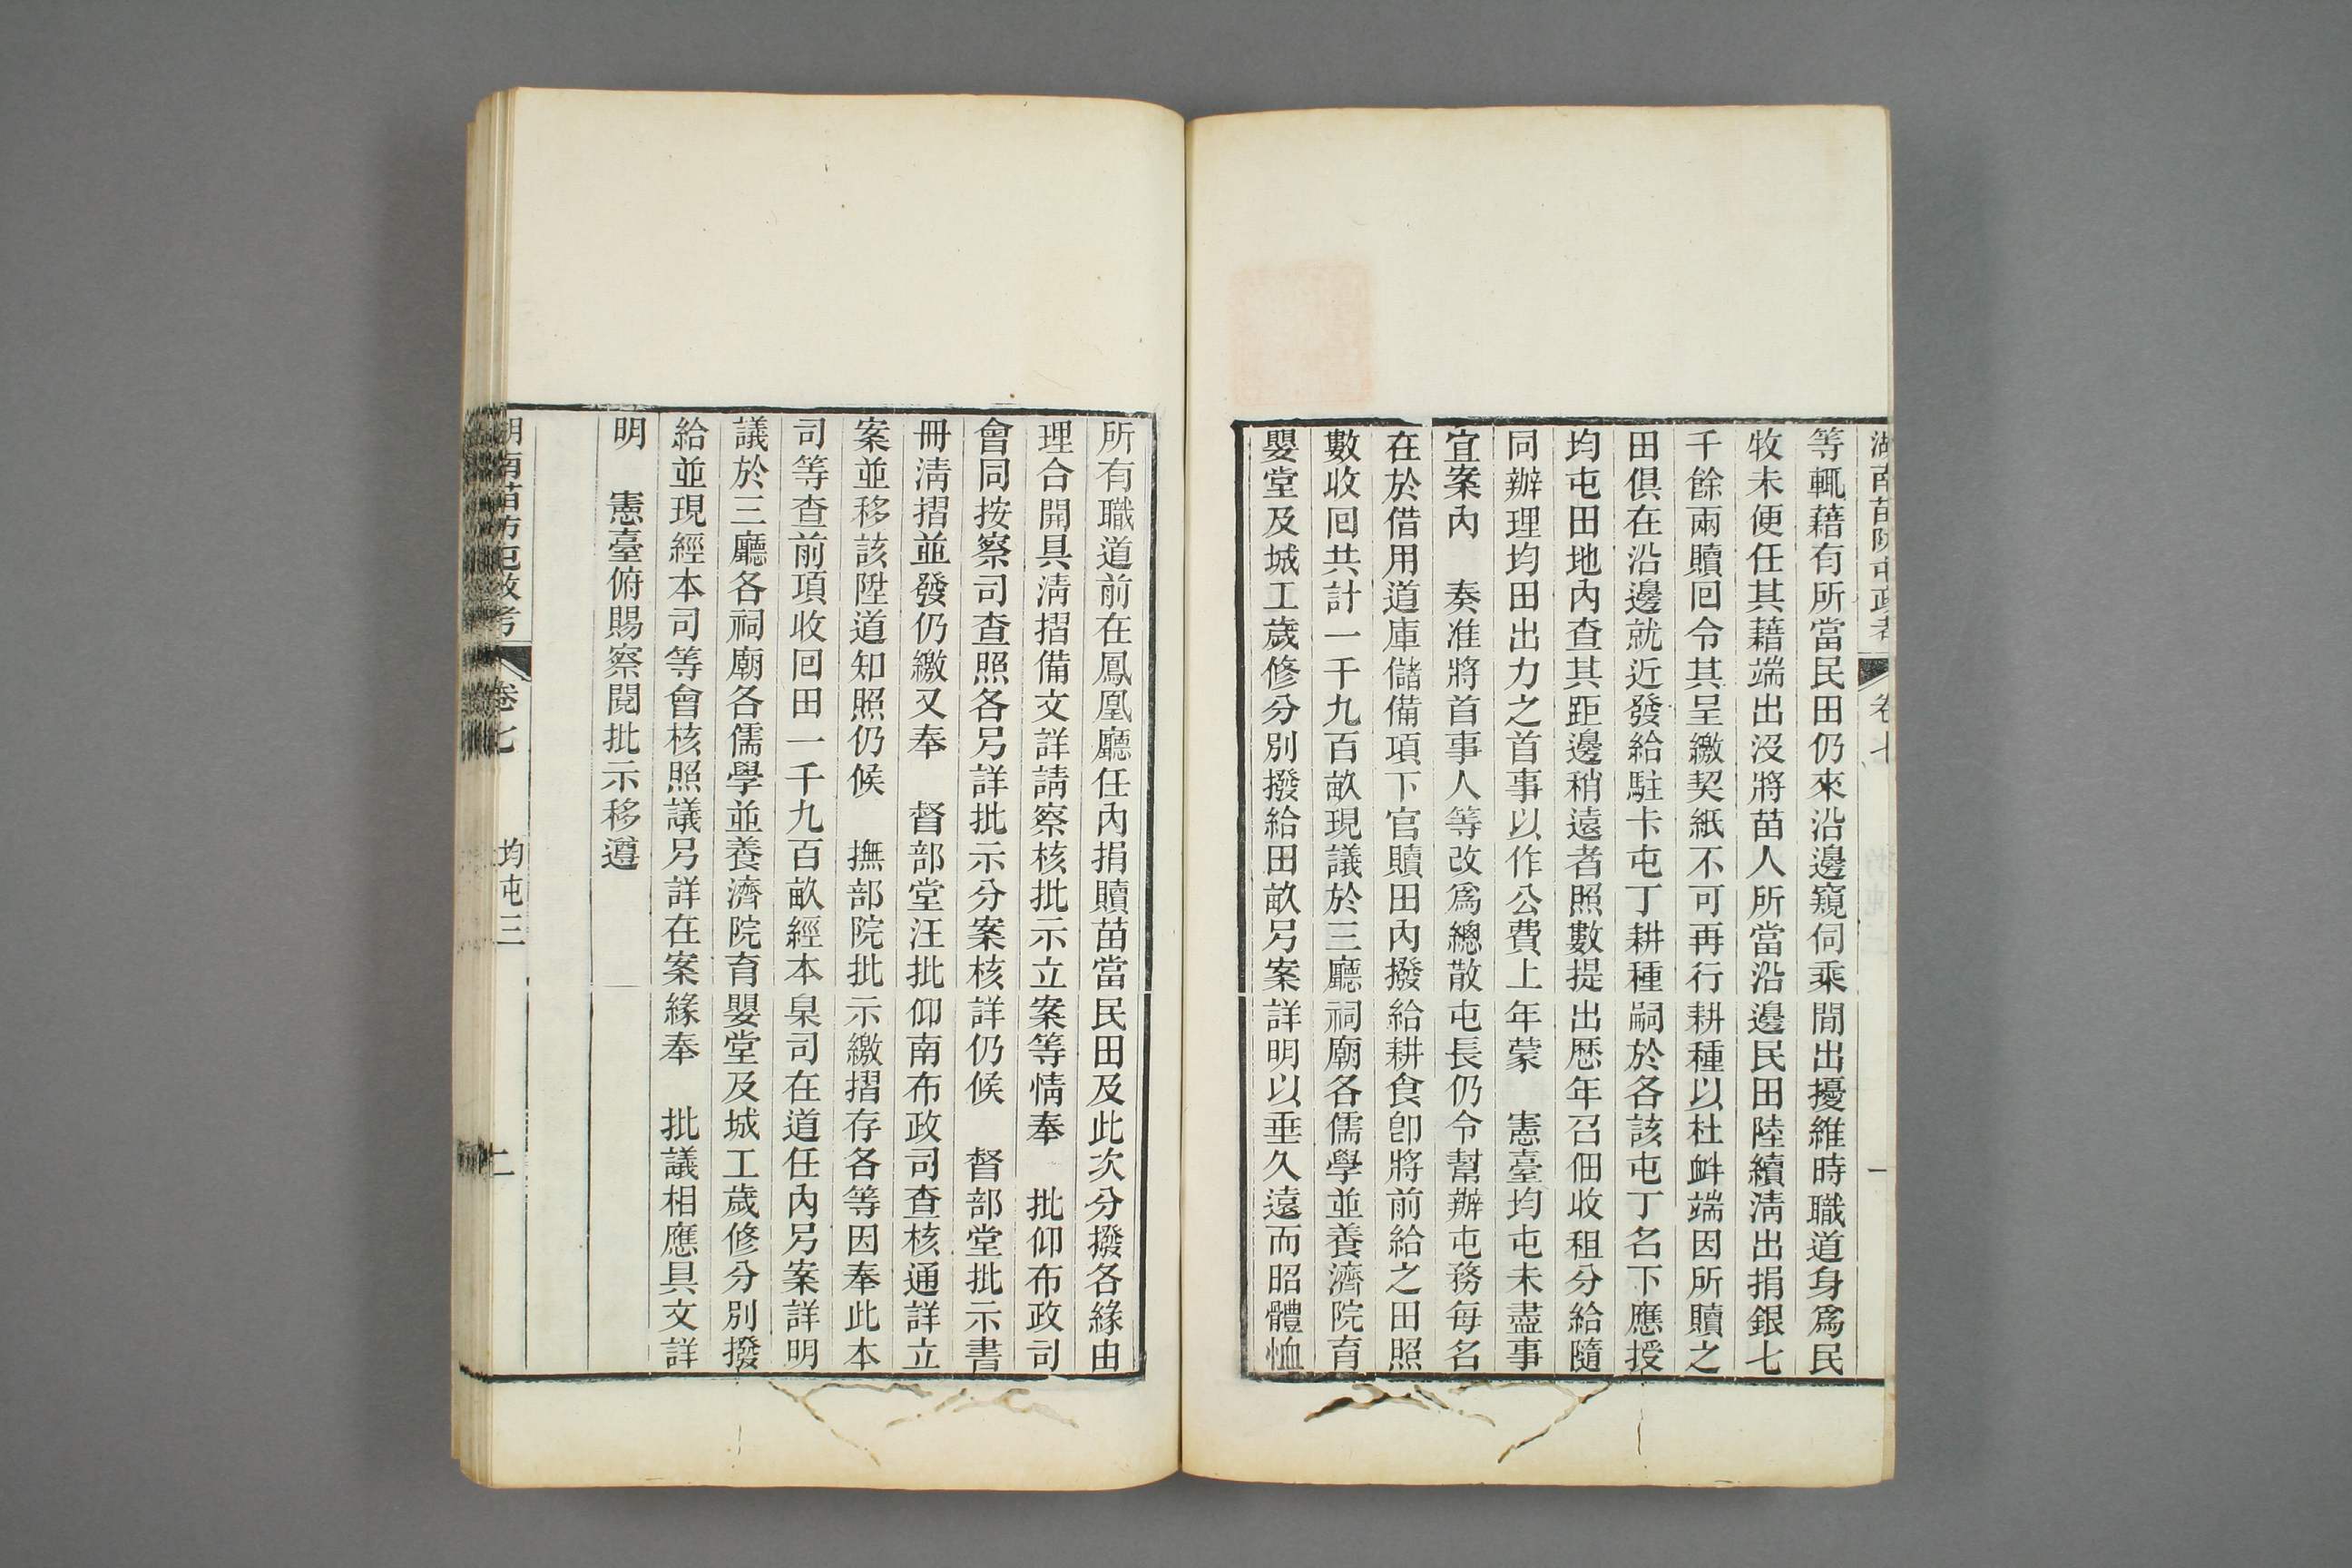 湖南苗防屯政考 卷七 一
等輒藉有所當民田仍來沿邊窺伺乘間出擾維時職道身爲民
牧未便任其藉端出沒將苗人所當沿邊民田陸續淸出捐銀七
千餘兩贖回令其呈繳契紙不可再行耕種以杜衅端因所贖之
田俱在沿邊就近發給駐卡屯丁耕種嗣於各該屯丁名下應授
均屯田地內查其距邊稍遠者照數提出歷年召佃收租分給隨
同辦理均田出力之首事以作公費上年蒙 憲臺均屯未盡事
宜案內 奏准將首事人等改爲總散屯長仍令幫辦屯務每名
在於借用道庫儲備項下官贖田內撥給耕食卽將前給之田照
數收回共計一千九百畝現議於三廳祠廟各儒學並養濟院育
嬰堂及城工歲修分別撥給田畝另案詳明以垂久遠而昭體恤
所有職道前在鳳凰廳任內捐贖苗當民田及此次分撥各緣由
理合開具淸摺備文詳請察核批示立案等情奉 批仰布政司
會同按察司查照各另詳批示分案核詳仍候 督部堂批示書
冊淸摺並發仍繳又奉 督部堂汪批仰南布政司查核通詳立
案並移該陞道知照仍候 撫部院批示繳摺存各等因奉此本
司等查前項收回田一千九百畝經本臬司在道任內另案詳明
議於三廳各祠廟各儒學並養濟院育嬰堂及城工歲修分別撥
給並現經本司等會核照議另詳在案緣奉 批議相應具文詳
明 憲臺俯賜察閱批示移遵
湖南苗防屯政考 卷七 均屯三 二